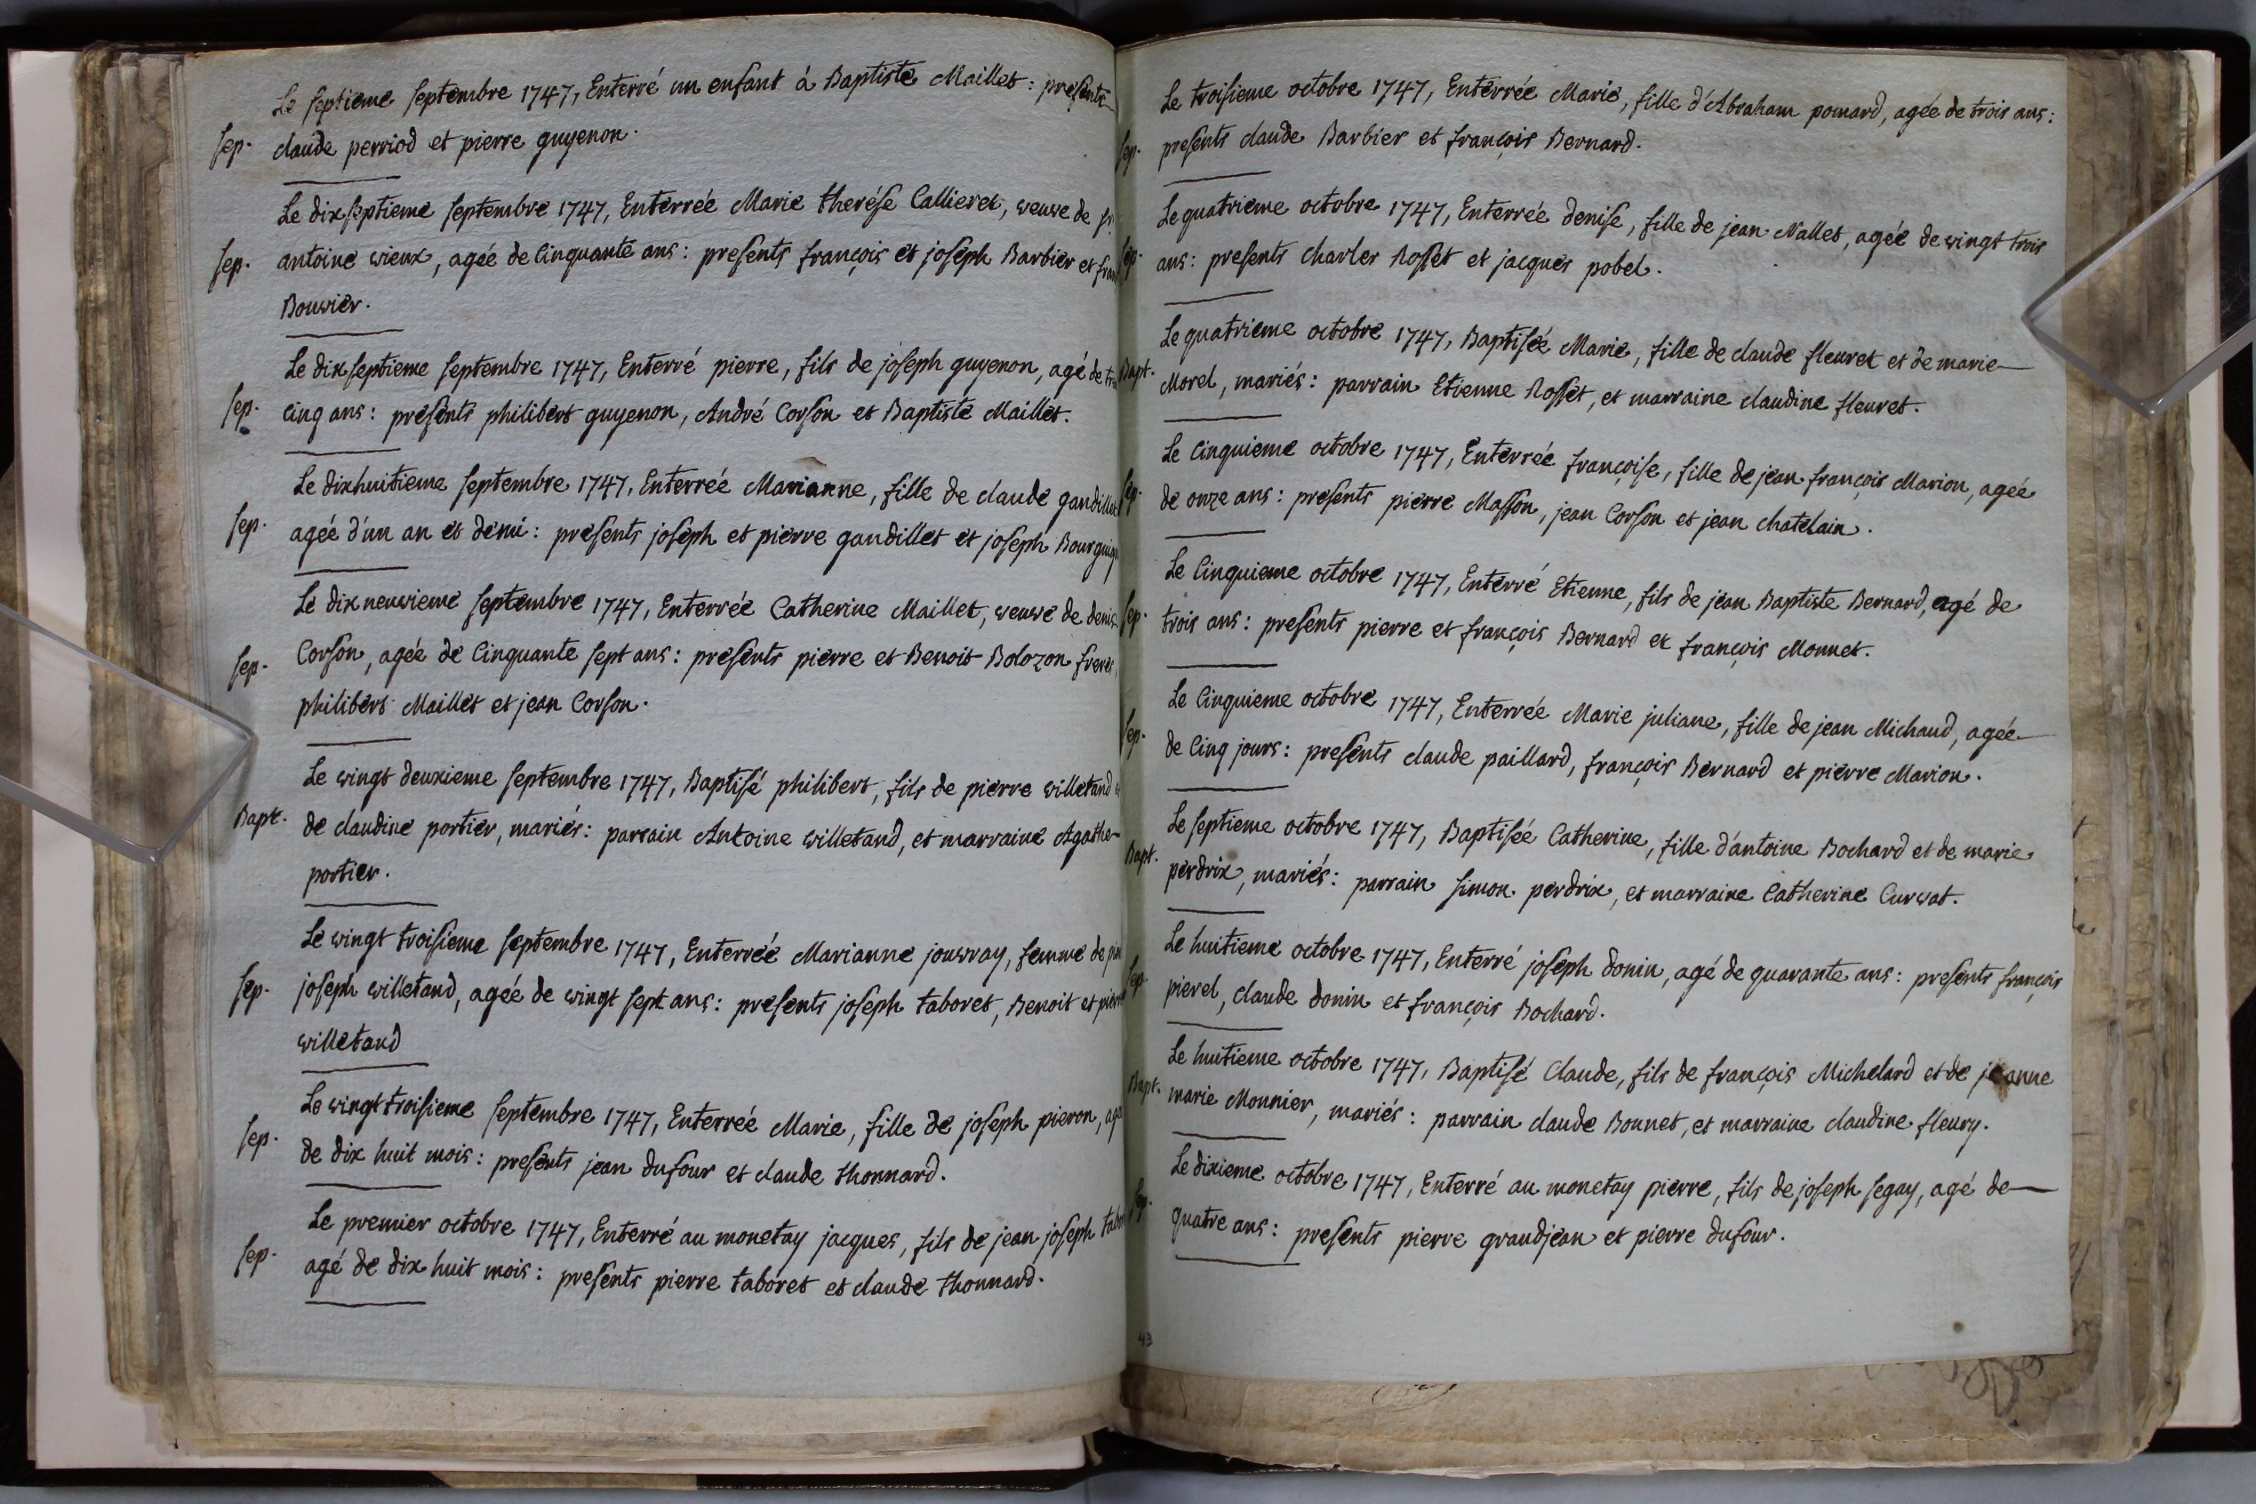 Le septieme septembre 1747, Enterré un enfant à Baptiste Maillet : presents
sep. claude perriod et pierre guyenon.
Le dixseptieme septembre 1747, Enterrée Marie therése Callieret, veuve de
sep. antoine vieux, agée de Cinquante ans : presents françois et joseph Barbier et
Bouvier.
Le dixseptieme septembre 1747, Enterré pierre, fils de joseph guyenon, agé de
sep. cinq ans : presents philibert guyenon, André Corson et Baptiste Maillet.
Le dixhuitieme septembre 1747, Enterrée Marianne, fille de claude gandillet
sep. agée d'un an et demi : presents joseph et pierre gandillet et joseph
Le dixneuvieme septembre 1747, Enterrée Catherine Maillet, veuve de denis
sep. Corson, agée de Cinquante sept ans : presents pierre et Benoit Bolozon freres,
philibert Maillet et jean Corson.
Le vingt deuxieme septembre 1747, Baptisé philibert, fils de pierre villetand
Bapt. de claudine portier, mariés : parrain Antoine villetand, et marraine Agathe
portier.
Le vingt troisieme septembre 1747, Enterrée Marianne jouvray, femme de
sep. joseph villetand, agée de vingt sept ans : presents joseph taboret, Benoit et pierre
villetand
Le vingt troisieme septembre 1747, Enterrée Marie, fille de joseph pieron,
sep. de dix huit mois : presents jean dufour et claude thonnard.
Le premier octobre 1747, Enterré au monetay jacques, fils de jean joseph
sep. agé de dix huit mois : presents pierre taboret et claude thonnard.
Le troisieme octobre 1747, Enterrée Marie, fille d'Abraham ponard, agée de trois ans :
sep. presents claude Barbier et françois Bernard.
Le quatrieme octobre 1747, Enterrée denise, fille de jean Nallet, agée de vingt trois
sep. ans : presents Charles Rosset et jacques pobel.
Le quatrieme octobre 1747, Baptisée Marie, fille de claude fleuret et de marie
Bapt. Morel, mariés : parrain Etienne Rosset, et marraine claudine fleuret.
Le Cinquieme octobre 1747, Enterrée françoise, fille de jean françois Marion, agée
sep. de onze ans : presents pierre Masson, jean Corson et jean chatelain.
Le Cinquieme octobre 1747, Enterré Etienne, fils de jean Baptiste Bernard, agé de
sep. trois ans : presents pierre et françois Bernard et françois Monnet.
Le Cinquieme octobre 1747, Enterrée Marie juliane, fille de jean Michaud, agée
sep. de Cinq jours : presents claude paillard, françois Bernard et pierre Marion.
Le septieme octobre 1747, Baptisée Catherine, fille d'antoine Bochard et de marie
Bapt. perdrix, mariés : parrain simon perdrix, et marraine Catherine Curvat.
Le huitieme octobre 1747, Enterré joseph donin, agé de quarante ans : presents françois
sep. pierel, claude donin et françois Bochard.
Le huitieme octobre 1747, Baptisé Claude, fils de françois Michelard et de jeanne
Bapt. marie Monnier, mariés : parrain claude Bonnet, et marraine claudine fleury.
Le dixieme octobre 1747, Enterré au monetay pierre, fils de joseph segay, agé de
sep. quatre ans : presents pierre grandjean et pierre dufour.
43